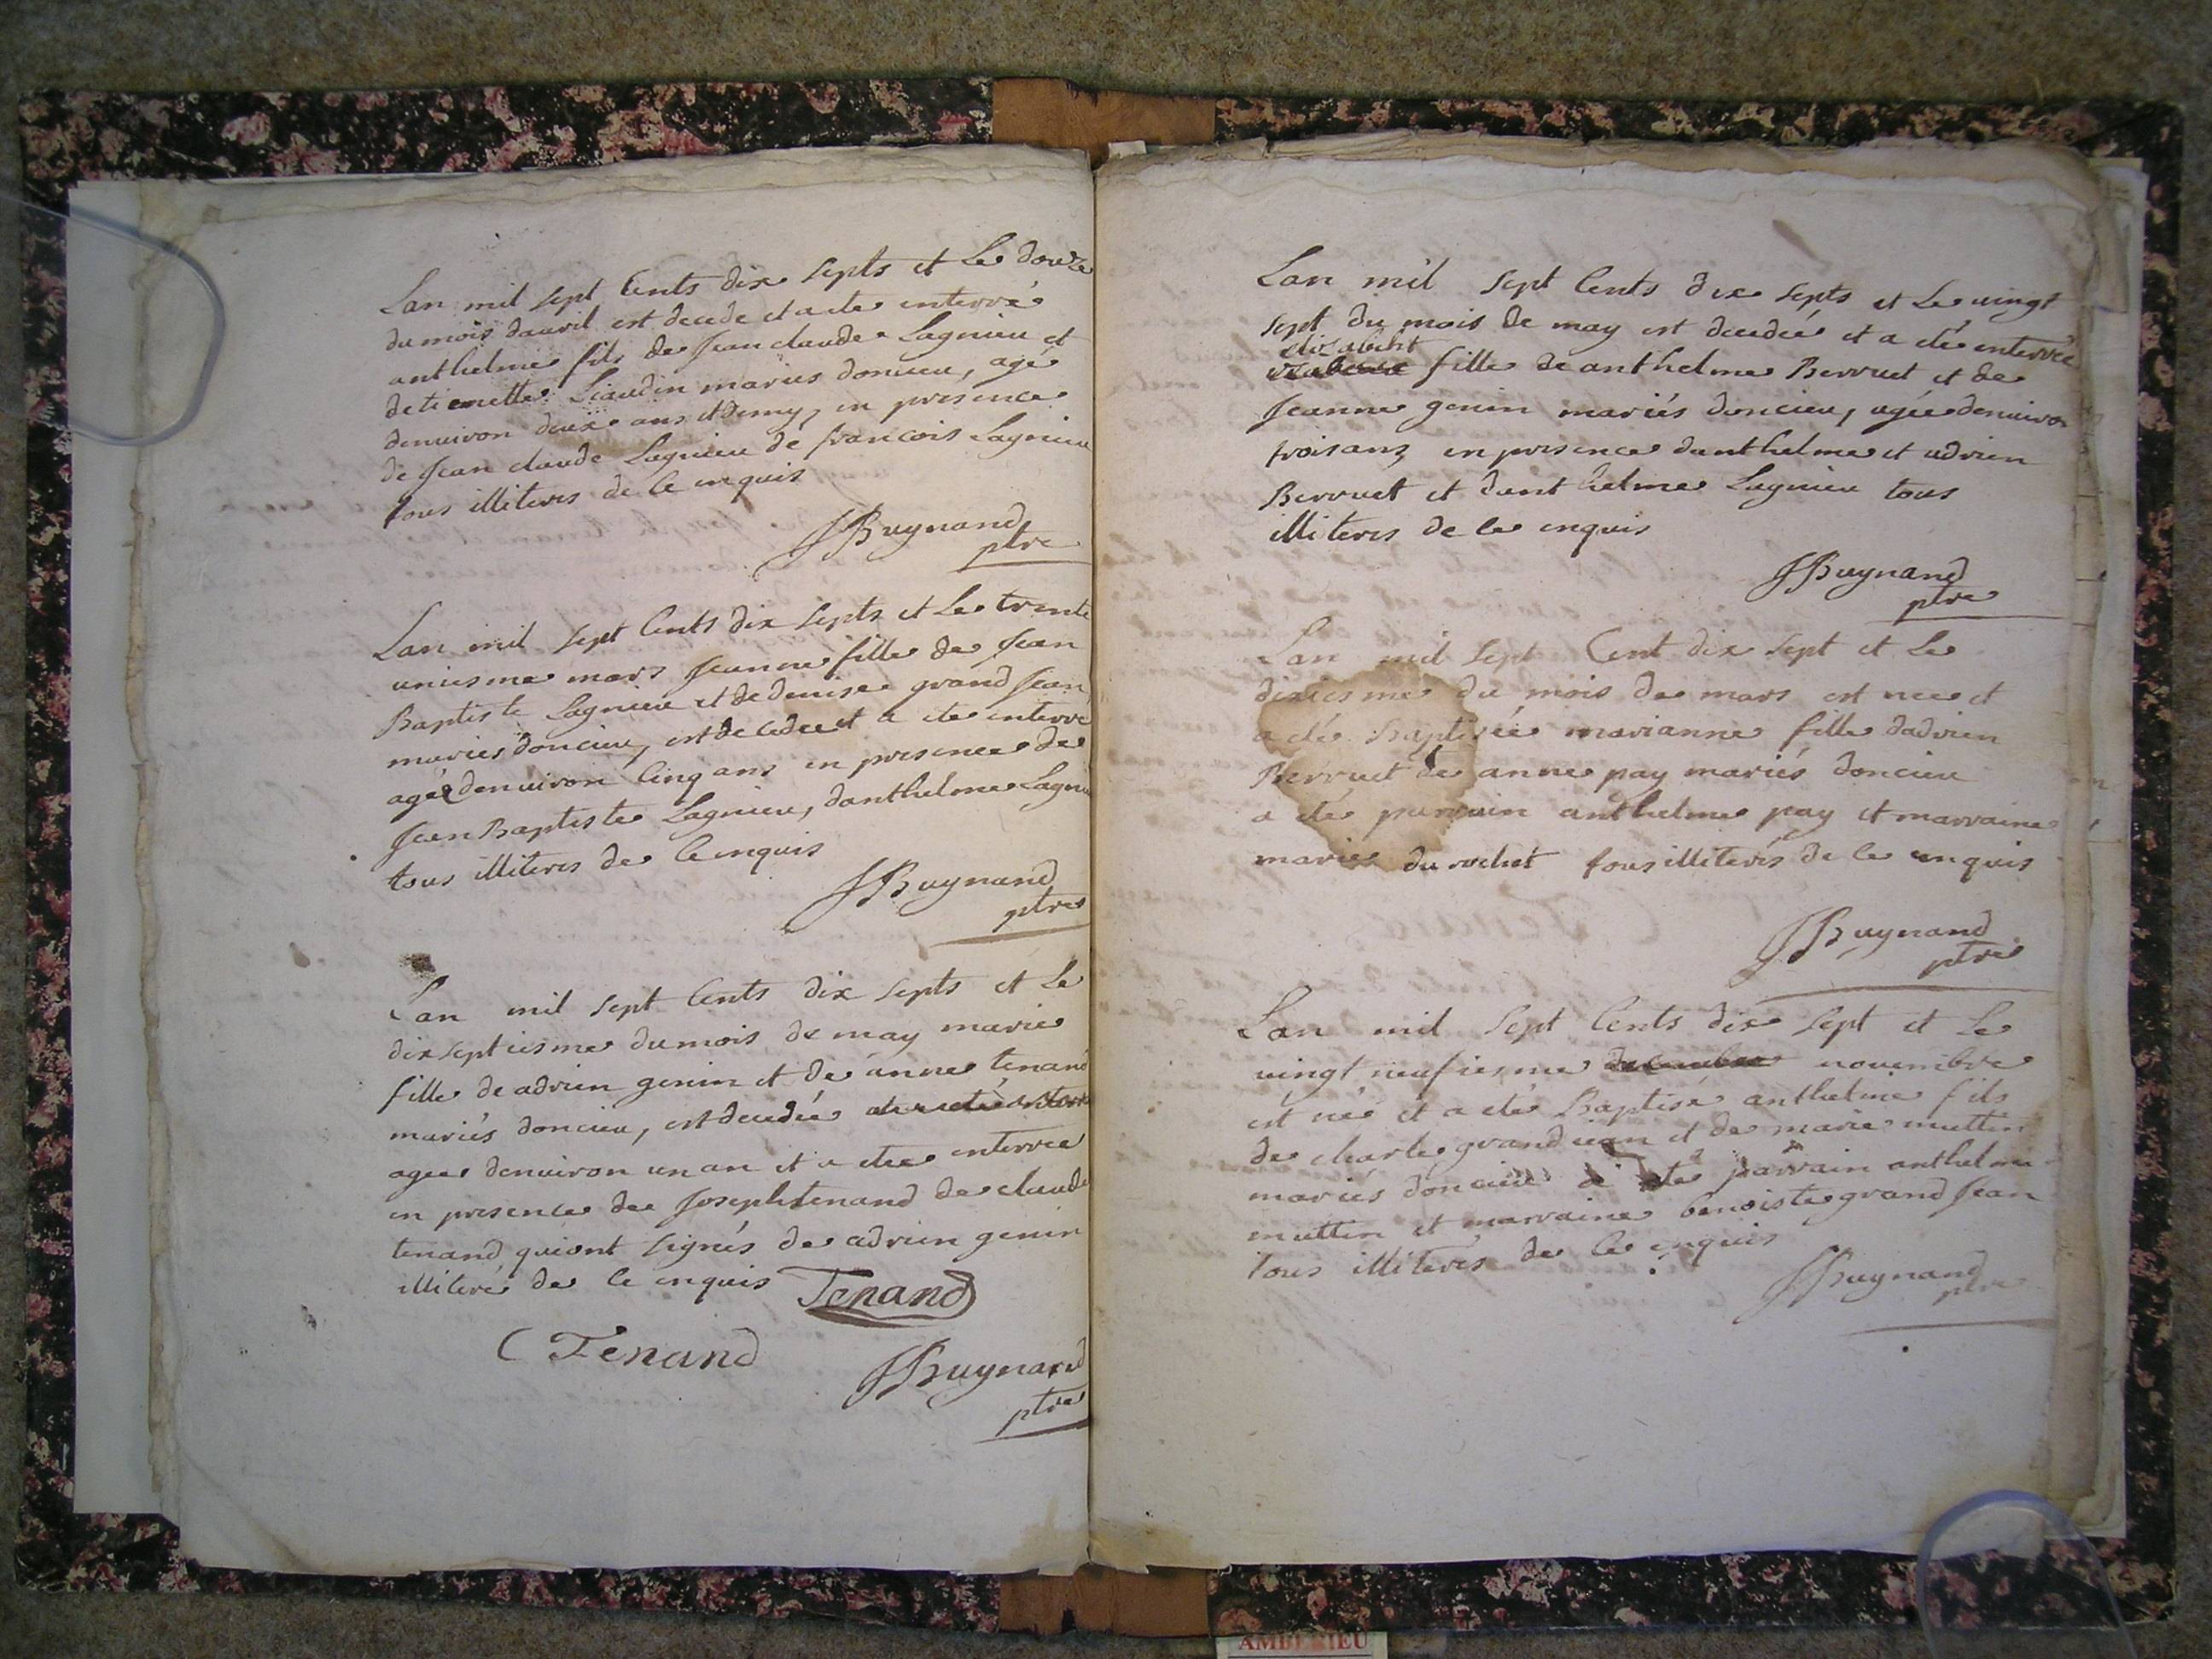 Lan mil sept Cents dix septs et Le douze
du mois davril est decede et a ete enterré
anthelme fils de Jean claude Lagnieu et
detienette Liaudin mariés doncieu, agé
denuiron deux ans et demy, en presence
de Jean claude Lagnieu de francois Lagnieu
tous illiteres de ce enquis
JBuynand
ptre
Lan mil sept Cents dix septs et Le trente
uniesme mars Jeanne fille de Jean
Baptiste Lagnieu et de denise grand Jean
mariés doncieu, est decedee et a ete enterré
agée denuiron Cinq ans en presence de
Jean Baptiste Lagnieu, danthelme Lagnieu
tous illiteres de ce enquis
JBuynand
ptre
Lan mil sept Cents dix septs et Le
dixseptiesme du mois de may marie
fille de adrien genin et de anne tenand
mariés doncieu, est decedée
agee denuiron un an et a etee enterree
en presence de Joseph tenand de claude
tenand qui ont signés de adrien genin
illiteré de ce enquis Tenand
C Tenand
JBuynand
ptre
Lan mil sept Cents dix septs et Le vingt
sept du mois de may est decedée et a eté enterrée
elizabeht
fille de anthelme Berruet et de
Jeanne genin mariés doncieu, agée denuiron
trois ans en presence danthelme et adrien
Berruet et danthelme Lagnieu tous
illiteres de ce enquis
JBuynand
ptre
Lan mil sept Cent dix sept et Le
dixiesme du mois de mars est nee et
a eté Baptisée marianne fille dadrien
Berruet de anne pay mariés doncieu
a eté parrain anthelme pay et marraine
marie du rochet tous illiterés de ce enquis
JBuynand
ptre
Lan mil sept Cents dix sept et Le
vingt neufiesme decembre novembre
est né et a eté Baptisé anthelme fils
de charle grandjean et de marie muttin
mariés doncieu a eté parrain anthelme
muttin et marraine benoiste grand Jean
tous illiterés de ce enquis
JBuynand
ptre
AMBERIEU